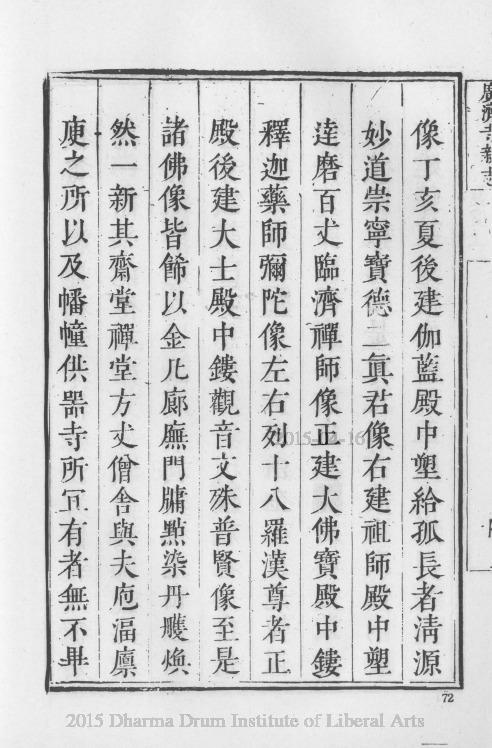 廣濟寺新志
像丁亥夏後建伽藍殿中塑給孤長者清源
妙道崇寧寶德二眞君像右建祖師殿中塑
達磨百丈臨濟禪師像正建大佛寶殿中鏤
釋迦藥師彌陀像左右列十八羅漢尊者正
殿後建大士殿中鏤觀音文殊普賢像至是
諸佛像皆餙以金凡廊廡門牗㸃染丹雘煥
然一新其齋堂禪堂方丈僧舍與夫庖湢廪
庾之所以及幡幢供器寺所冝有者無不畢
72
2015-12-16
2015 Dharma Drum Institute of Liberal Arts